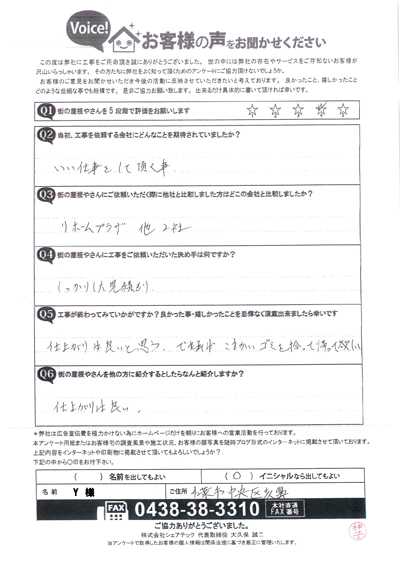 Voice!
お客様の声をお聞かせください
この度は弊社に工事をご用命頂き誠にありがとうございました。世の中には弊社の存在やサービスをご存知ないお客様が
沢山いらっしゃいます。その方たちに弊社をよく知って頂くためのアンケートにご協力頂けないでしょうか。
お客様のご意見をお聞かせいただき今後の活動に反映させていただきたいと考えております。良かったこと、嬉しかったこと
どのような些細な事でも結構です。是非ご協力お願い致します。出来るだけ具体的に書いて頂ければ幸いです。
Q1 街の屋根やさんを5段階で評価をお願いします ☆ ☆ ☆ ☆ ☆
Q2 当初、工事を依頼する会社にどんなことを期待されていましたか?
いい仕事をして頂く事
Q3 街の屋根やさんにご依頼いただく際に他社と比較しました方はどこの会社と比較しましたか?
リホームプラザ 他 2社
Q4 街の屋根やさんに工事をご依頼いただいた決め手は何ですか?
しっかりした見積もり
Q5 工事が終わってみていかがですか?良かった事・嬉しかったことを忌憚なく頂戴出来ましたら幸いです
仕上がりは良いと思う、できれば こまかいゴミを拾って帰って欲しい
Q6 街の屋根やさんを他の方に紹介するとしたらなんと紹介しますか?
仕上がりは良い。
*弊社は広告宣伝費を極力かけない為にホームページだけを頼りにお客様への営業活動を行っております。
本アンケート用紙またはお客様宅の調査風景や施工状況、お客様の顔写真を随時ブログ形式のインターネットに掲載させて頂いております。
上記内容をインターネットや印刷物に掲載させて頂いてもよろしいでしょうか?
下記の中から〇印をお付下さい。
( )名前を出してもよい
(〇)イニシャルなら出してもよい
名前 Y 様
ご住所 千葉市中央区
FAX 0438-38-3310 本社直通 FAX番号
ご協力ありがとうございました。
株式会社シェアテック 代表取締役 大久保 誠二
当アンケートで取得したお客様の個人情報は関係法規に基づき厳正に管理いたします。